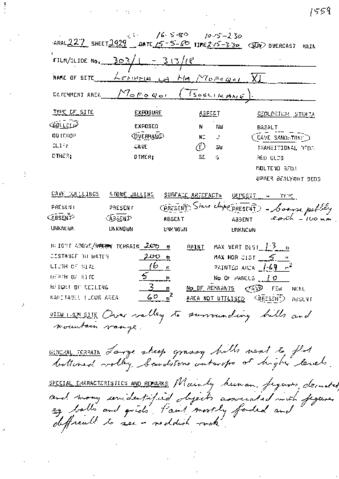 1559
16·5·80 10·15-2·30
227 SHEET 2929 DATE 15-5-80 TIME 2·15-3·30 SUN OVERCAST RAIN
FILM/SLIDE NO. 303/1 - 313/18
NAME OF SITE HA MOROQOI XI
CATCHMENT AREA MOROQOI (TSOELIKANE)
TYPE OF SITE EXPOSURE ASPECT GEOLOGICAL STRATA
SHELTER EXPOSED N NW BASALT
OUTCROP OVERHANG NE S CAVE SANDSTONE
CLIFF CAVE E SW TRANSITIONAL BEDS
OTHER: OTHER: SE RED BEDS
MOLTENO BEDS
UPPER BEAUFORT BEDS
CAVE BUILDINGS STONE WALLING SURFACE ARTEFACTS DEPOSIT
PRESENT PRESENT PRESENT PRESENT
ABSENT ABSENT ABSENT ABSENT
UNKNOWN UNKNOWN UNKNOWN UNKNOWN
HEIGHT ABOVE TERRAIN 200 m PAINT MAX VERT DIST 1·3 m
DISTANCE TO WATER 200 m MAX HOR DIST 5 m
WIDTH OF SITE 16 m PAINTED AREA 1·69 m²
DEPTH OF SITE 5 m NO OF PANELS 10
HEIGHT OF CEILING 3 m NO OF REMNANTS MANY FEW NONE
HABITABLE FLOOR AREA 60 m² AREA NOT UTILISED PRESENT ABSENT
VIEW FROM SITE Over valley to surrounding hills and
mountain range.
GENERAL TERRAIN Large steep grassy hills next to flat
bottomed valley. Sandstone outcrops at higher levels.
SPECIAL CHARACTERISTICS AND REMARKS Mainly human figures,
and many unidentified objects associated with figures
eg balls and grids. Paint mostly faded and
difficult to see - reddish rock.